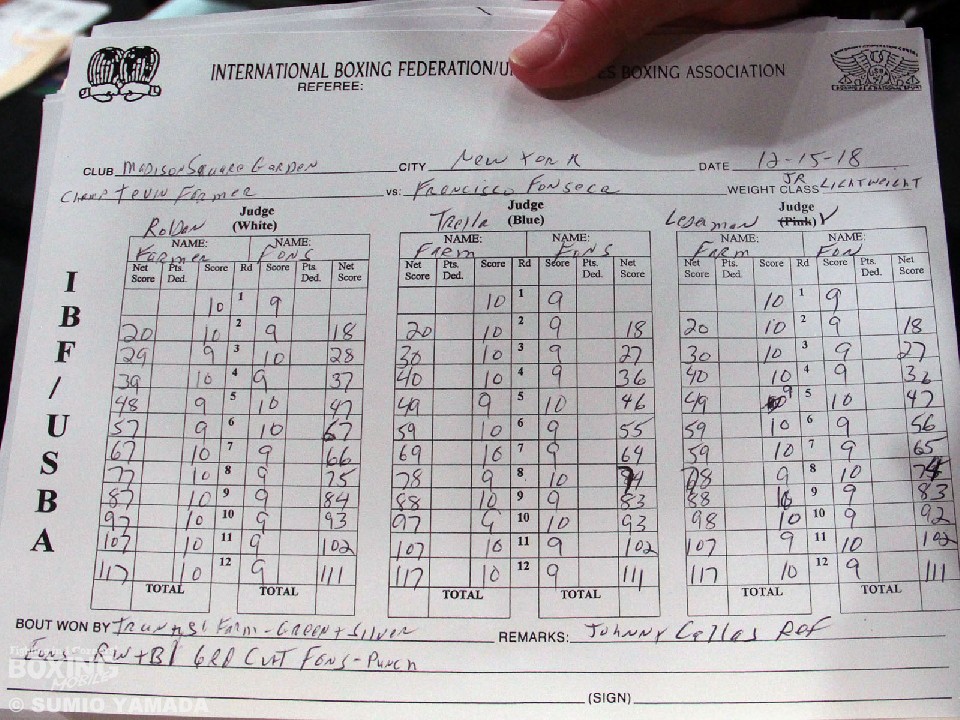 INTERNATIONAL BOXING FEDERATION/U ES BOXING ASSOCIATION
REFEREE:
CLUB Madison Square Garden CITY New York DATE 12-15-18
Champ Tevin Farmer vs: Francisco Fonseca WEIGHT CLASS JR LIGHTWEIGHT
IBF/USBA
Judge (White)
NAME: Farmer NAME: FONS
Net Score Pts. Ded. Score Rd Score Pts. Ded. Net Score
10 1 9
20 10 2 9 18
29 9 3 10 28
39 10 4 9 37
48 9 5 10 47
57 9 6 10 57
67 10 7 9 66
77 10 8 9 75
87 10 9 9 84
97 10 10 9 93
107 10 11 9 102
117 10 12 9 111
TOTAL TOTAL
Judge (Blue)
NAME: Farm NAME: FONS
Net Score Pts. Ded. Score Rd Score Pts. Ded. Net Score
10 1 9
20 10 2 9 18
30 10 3 9 27
40 10 4 9 36
49 9 5 10 46
59 10 6 9 55
69 10 7 9 64
78 9 8 10 74
88 10 9 9 83
97 9 10 10 93
107 10 11 9 102
117 10 12 9 111
TOTAL TOTAL
Judge (Pink)
NAME: Farm NAME: Fon
Net Score Pts. Ded. Score Rd Score Pts. Ded. Net Score
10 1 9
20 10 2 9 18
30 10 3 9 27
40 10 4 9 36
49 9 5 10 47
59 10 6 9 56
59 10 7 9 65
78 9 8 10 74
88 10 9 9 83
98 10 10 9 92
107 9 11 10 102
117 10 12 9 111
TOTAL TOTAL
BOUT WON BY Farm - Green + Silver REMARKS: Johnny Callas Ref
Fons - RW + Bl 6RD Cut Fons - Punch
(SIGN)
BOXING
MOBILE
© SUMIO YAMADA